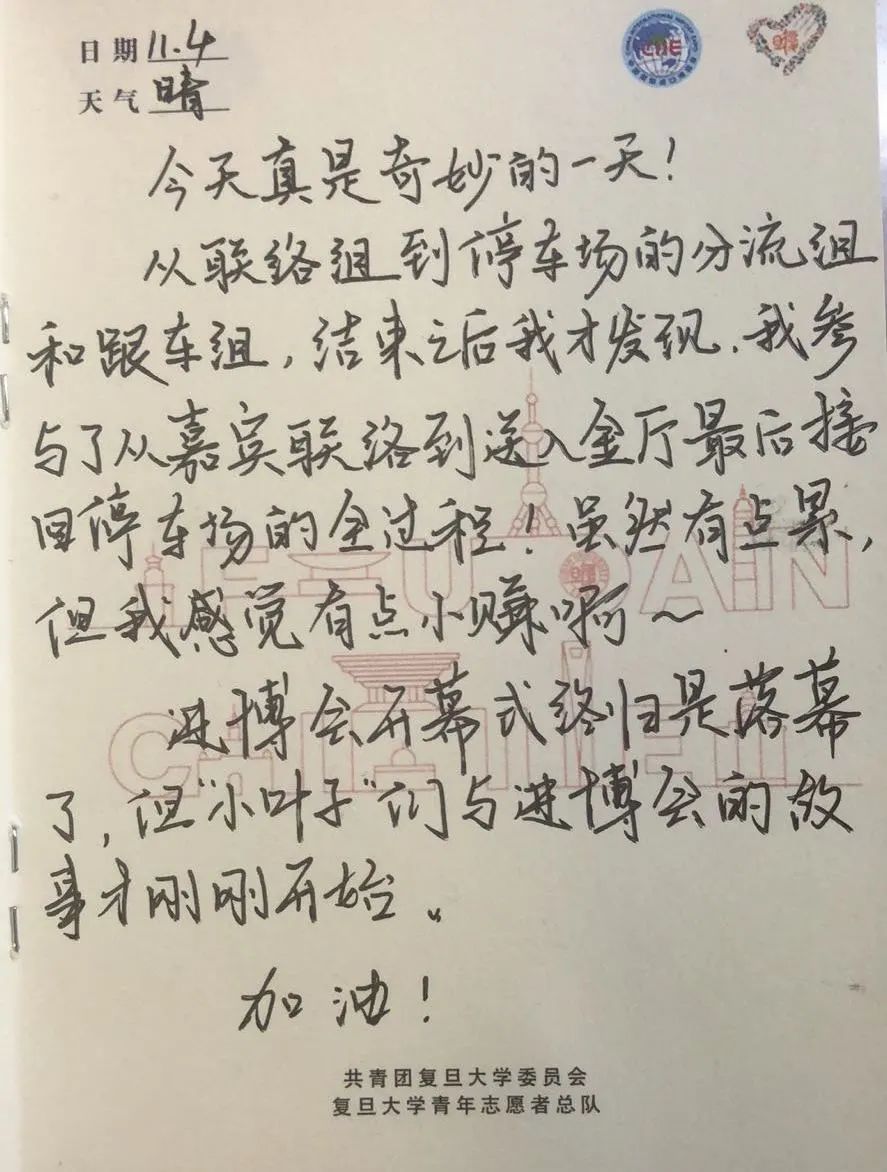 日期 11.4
天气 晴
CIIE
今天真是奇妙的一天!
从联络组到停车场的分流组
和跟车组,结束之后我才发现,我参
与了从嘉宾联络到送入金厅最后接
回停车场的全过程!虽然有点累,
FUDAN
但我感觉有点小赚啊~
进博会开幕式终归是落幕
了,但“小叶子”们与进博会的故
事才刚刚开始。
加油!
共青团复旦大学委员会
复旦大学青年志愿者总队